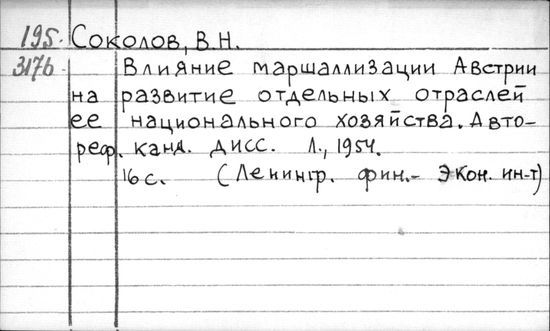 195. Соколов, В.Н.
3176. Влияние маршаллизации Австрии
на развитие отдельных отраслей
ее национального хозяйства. Авто-
реф. канд. дисс. Л., 1954.
16 с. (Ленингр. фин.- экон. ин-т)